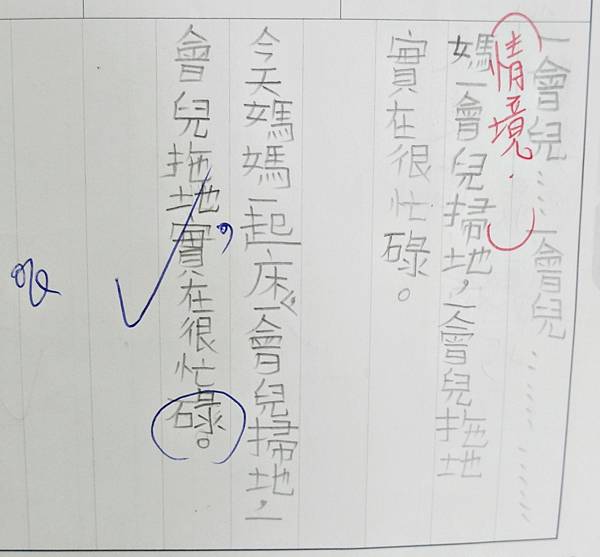 一會兒……一會兒…………
（情境　）
媽一會兒掃地，一會兒拖地
實在很忙碌。
今天媽媽一起床一會兒掃地，一
會兒拖地，實在很忙碌。